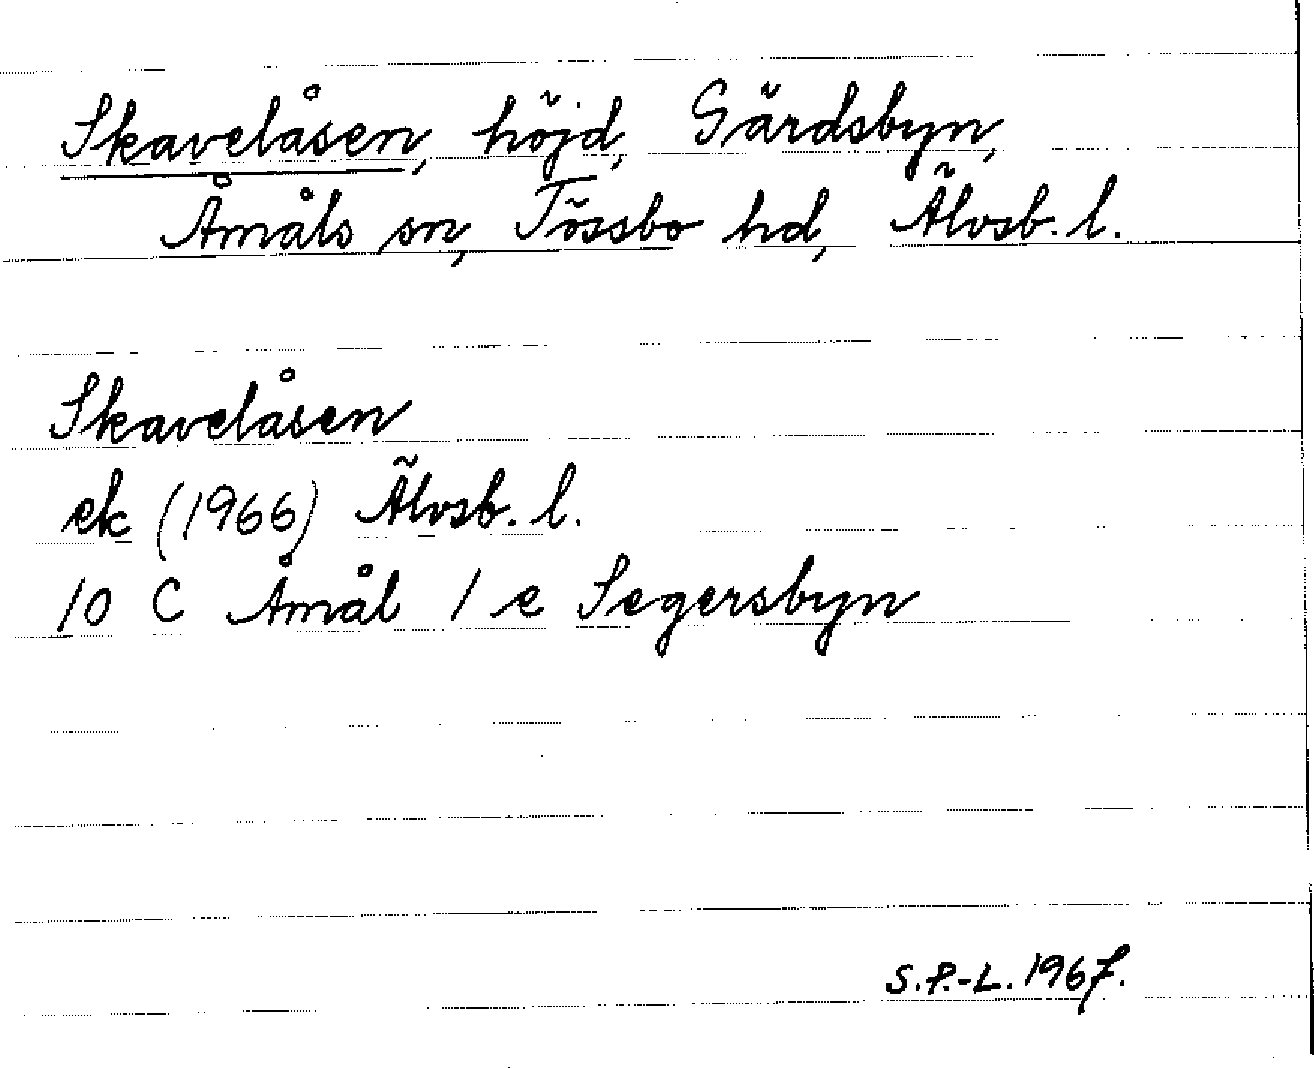 Skavelåsen, höjd, Gärdsbyn,
Åmåls sn, Tössbo hd, Älvsb. l.
Skavelåsen
ek (1966) Älvsb. l.
10 C Åmål 1 e Segersbyn
S.P.-L. 1967.